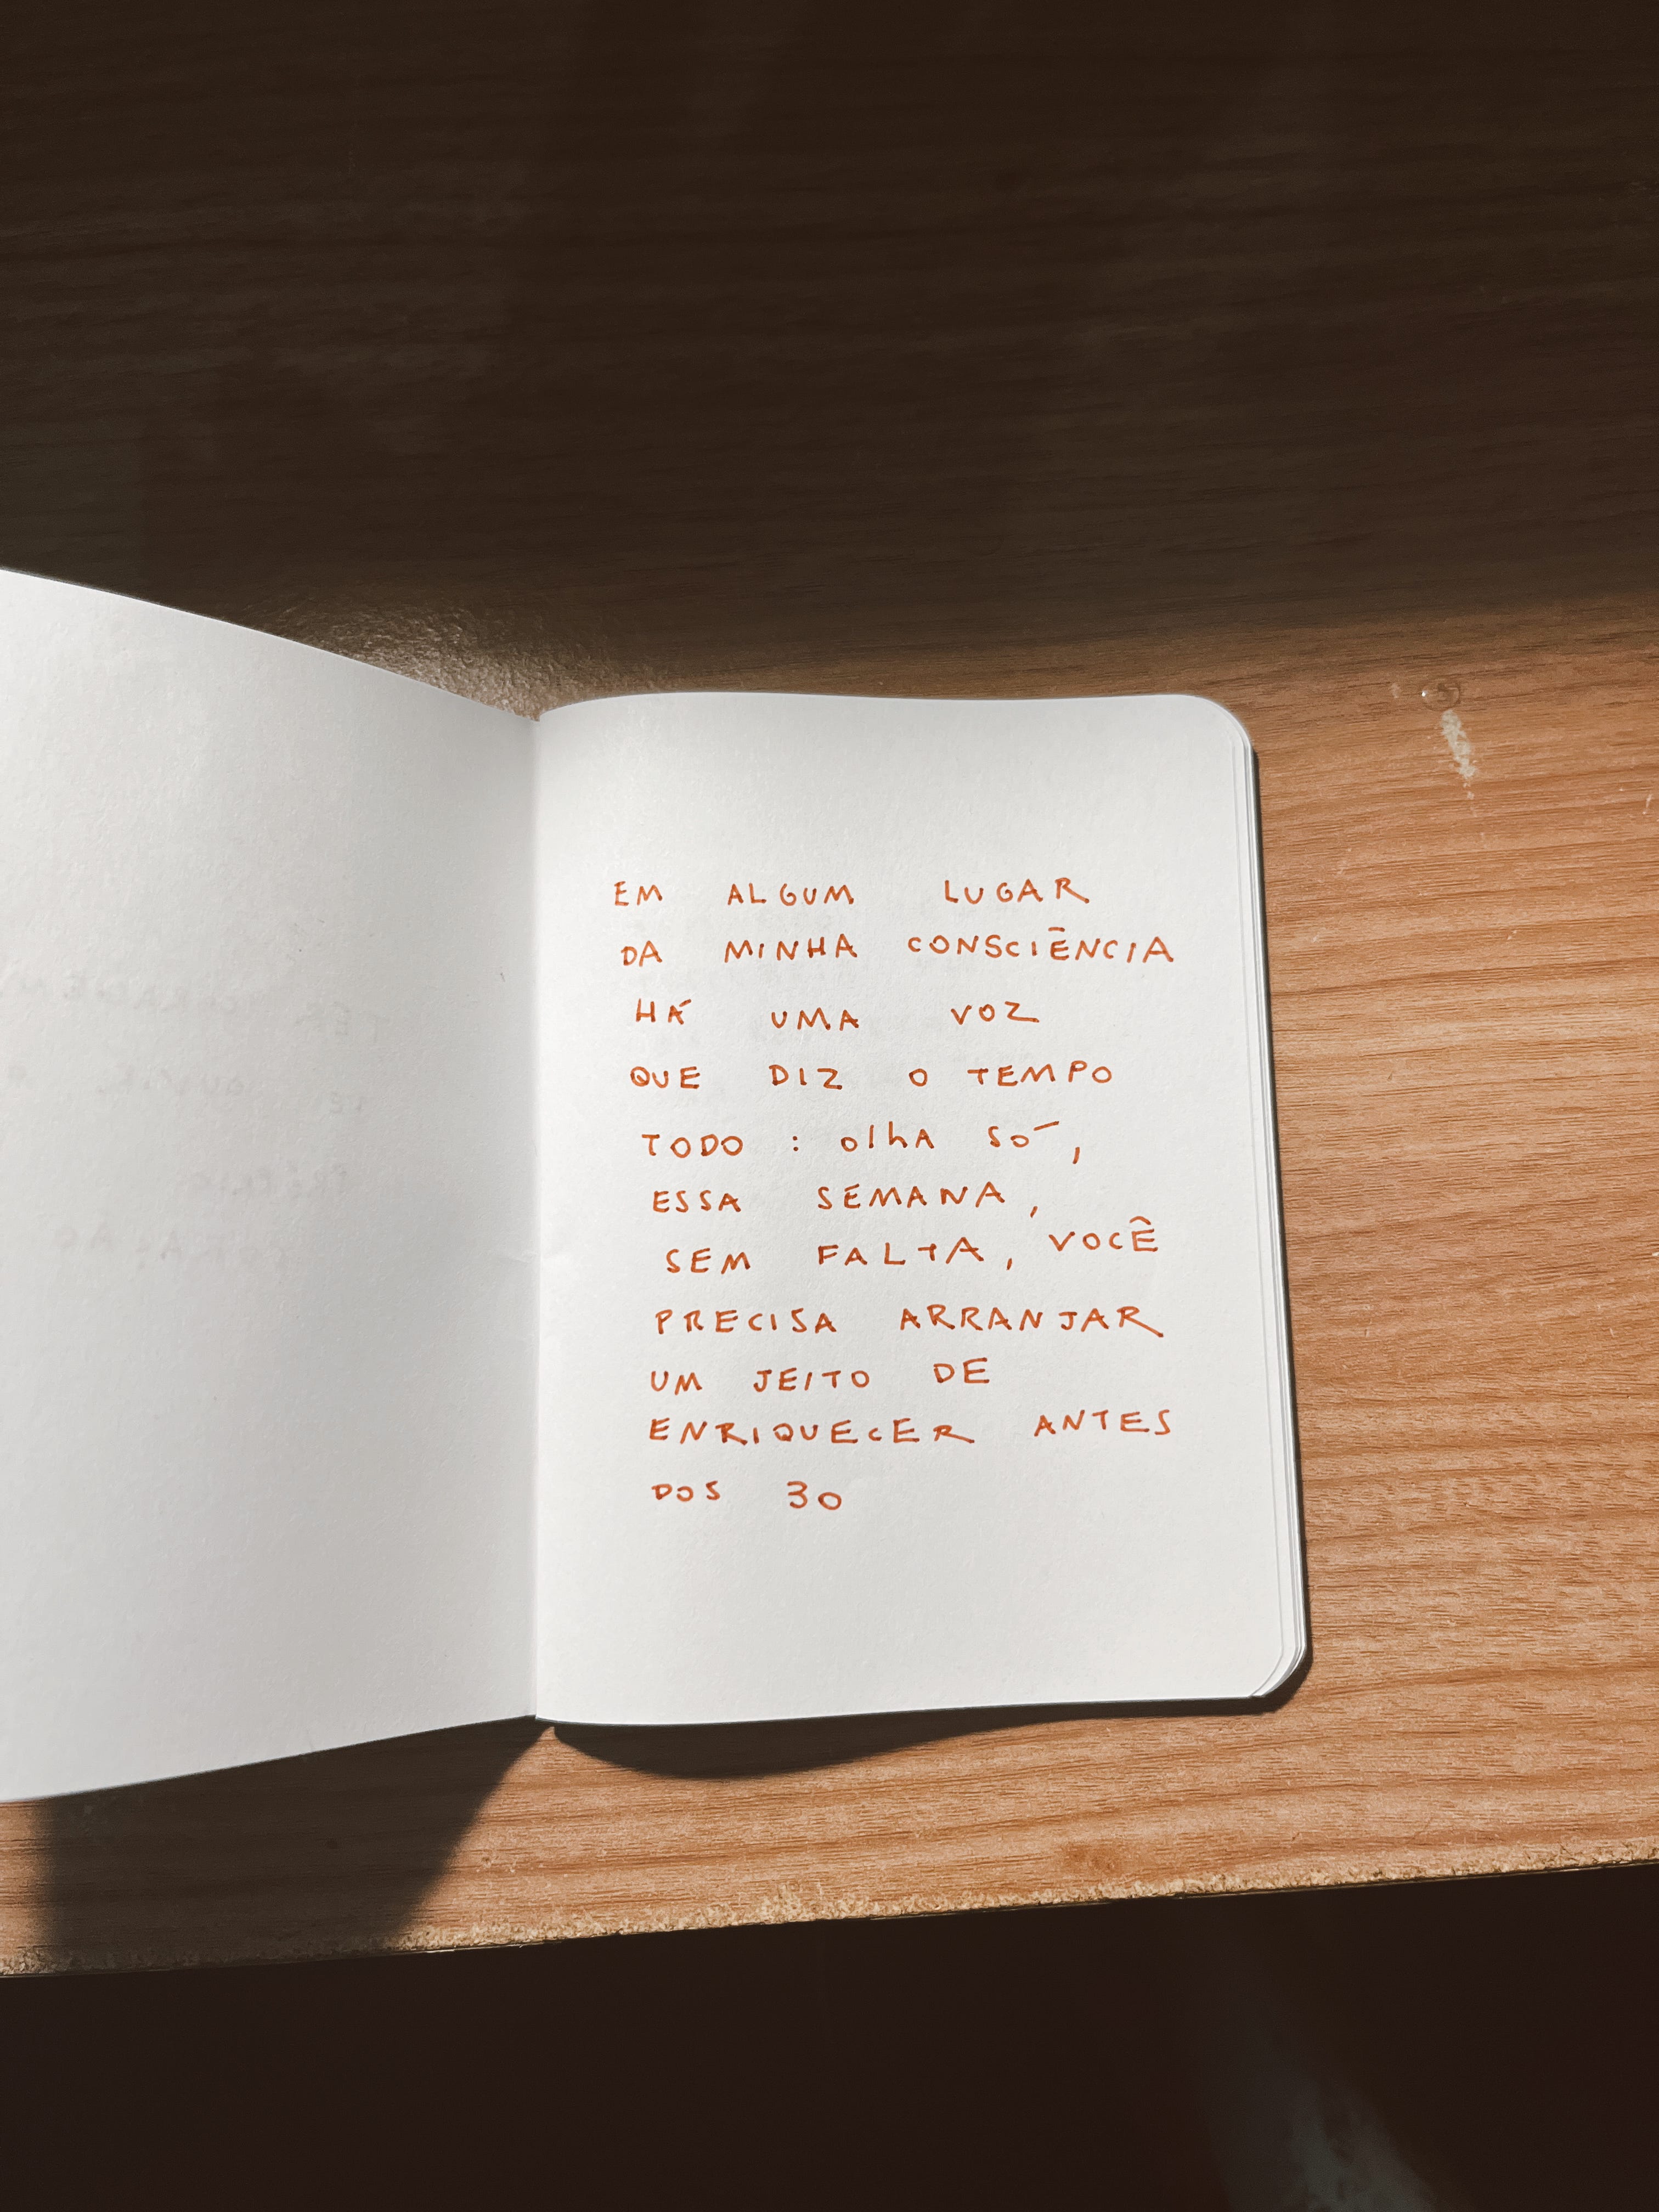 EM ALGUM LUGAR
DA MINHA CONSCIÊNCIA
HÁ UMA VOZ
QUE DIZ O TEMPO
TODO : OlhA SÓ,
ESSA SEMANA,
SEM FALTA, VOCÊ
PRECISA ARRANJAR
UM JEITO DE
ENRIQUECER ANTES
DOS 30